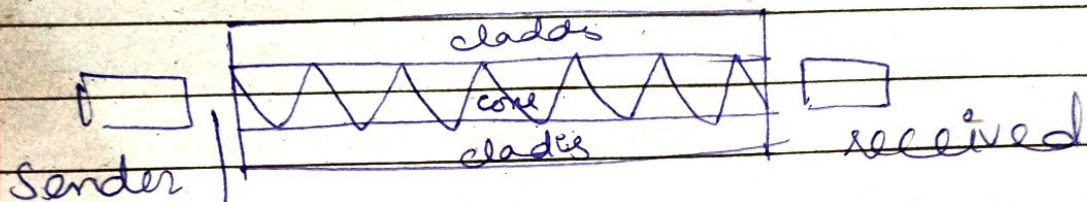 cladds
core
clades
Sender
received